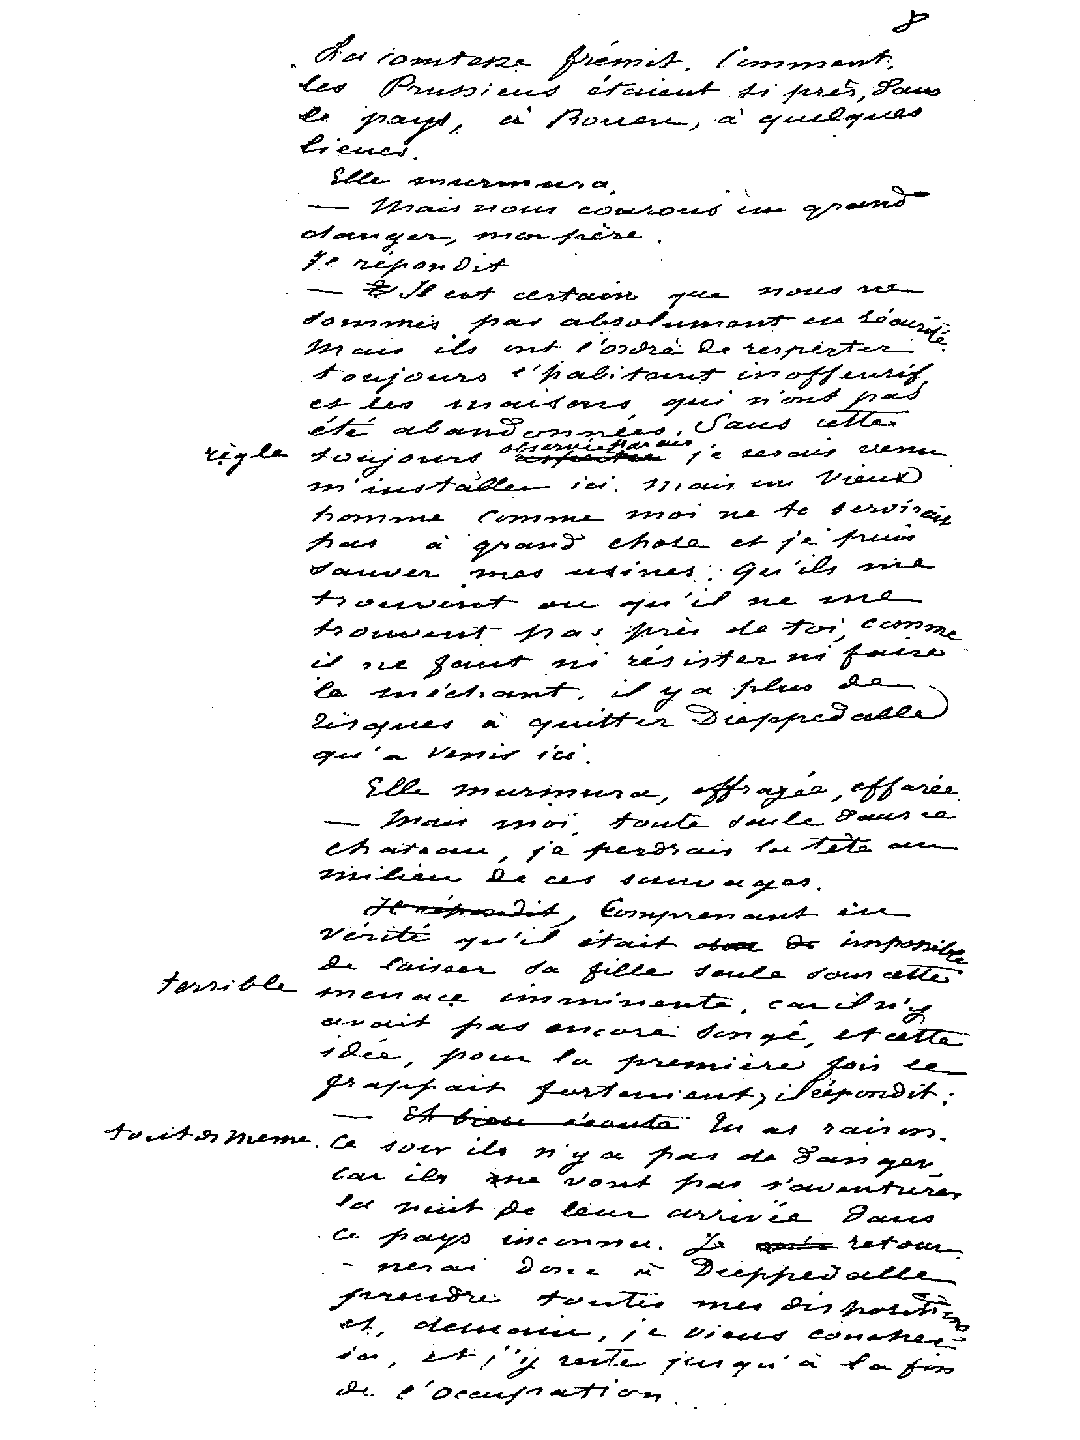 8
La comtesse frémit. Comment,
les Prussiens étaient si près, dans
le pays, à Rouen, à quelques
lieues.
Elle murmura.
— Mais nous courons un grand
danger, mon père.
Il répondit
— Il est certain que nous ne
sommes pas absolument en sécurité.
Mais ils ont l'ordre de respecter
toujours l'habitant inoffensif
et les maisons qui n'ont pas
été abandonnées. Sans cette
règle toujours observée je serais venu
m'installer ici. Mais un vieux
homme comme moi ne te servirait
pas à grand chose et je puis
sauver mes usines. Qu'ils me
trouvent ou qu'il ne me
trouvent pas près de toi, comme
il ne faut ni résister ni faire
le méchant, il y a plus de
risques à quitter Dieppedalle
qu'a venir ici.
Elle murmura, effrayée, effarée.
— Mais moi, toute seule dans ce
chateau, je perdrais la tête au
milieu de ces sauvages.
Il répondit, Comprenant en
vérité qu'il était de impossible
de laisser sa fille seule sous cette
terrible menace imminente, car il n'y
avait pas encore songé, et cette
idée, pour la première fois le
frappait fortement, il répondit :
— Et bien écoute Tu as raison.
tout de meme. Ce soir ils n'y a pas de danger,
car ils ne vont pas s'aventurer
la nuit de leur arrivée dans
ce pays inconnu. Je retour
- nerai donc à Dieppedalle
prendre toutes mes dispositions
et, demain, je viens coucher
ici, et j'y reste jusqu'à la fin
de l'occupation.